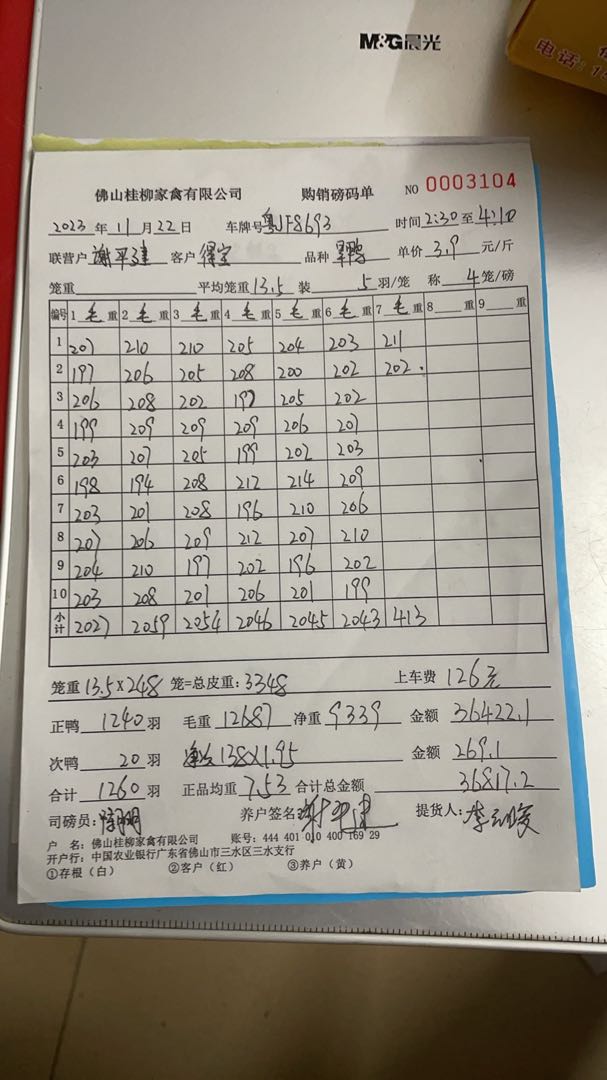 M&G晨光
电话:1
佛山桂柳家禽有限公司 购销磅码单 NO 0003104
2023 年 11 月 22 日 车牌号 粤JF8693 时间 2:30 至 4:10
联营户 谢平建 客户 品种 单价 3.9 元/斤
笼重 平均笼重 13.5 装 5 羽/笼 称 4 笼/磅
编号 1 毛 重 2 毛 重 3 毛 重 4 毛 重 5 毛 重 6 毛 重 7 毛 重 8 重 9 重
1 207 210 210 205 204 203 211
2 197 206 205 208 200 202 202.
3 206 208 202 197 205 202
4 199 209 209 209 206 207
5 203 207 205 199 202 203
6 198 194 208 212 214 209
7 203 201 208 196 210 206
8 207 206 209 212 207 210
9 204 210 197 202 196 202
10 203 208 201 206 201 199
小计 2027 2059 2054 2046 2045 2043 413
笼重 13.5×248 笼=总皮重: 3348 上车费 126元
正鸭 1240 羽 毛重 12687 净重 9339 金额 36422.1
次鸭 20 羽 138×1.95 金额 269.1
合计 1260 羽 正品均重 7.53 合计总金额 36817.2
司磅员: 养户签名: 谢平建 提货人:
户 名: 佛山桂柳家禽有限公司 账号: 444 401 010 400 169 29
开户行: 中国农业银行广东省佛山市三水区三水支行
①存根(白) ②客户(红) ③养户(黄)